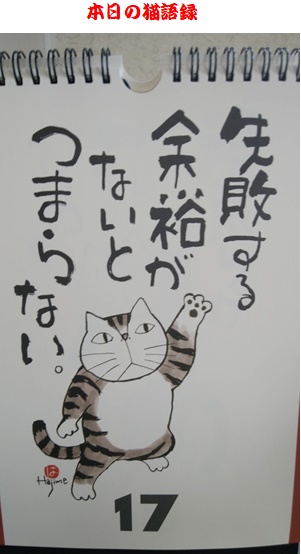 本日の猫語録
失敗する
余裕が
ないと
つまらない。
は
Hajime
17